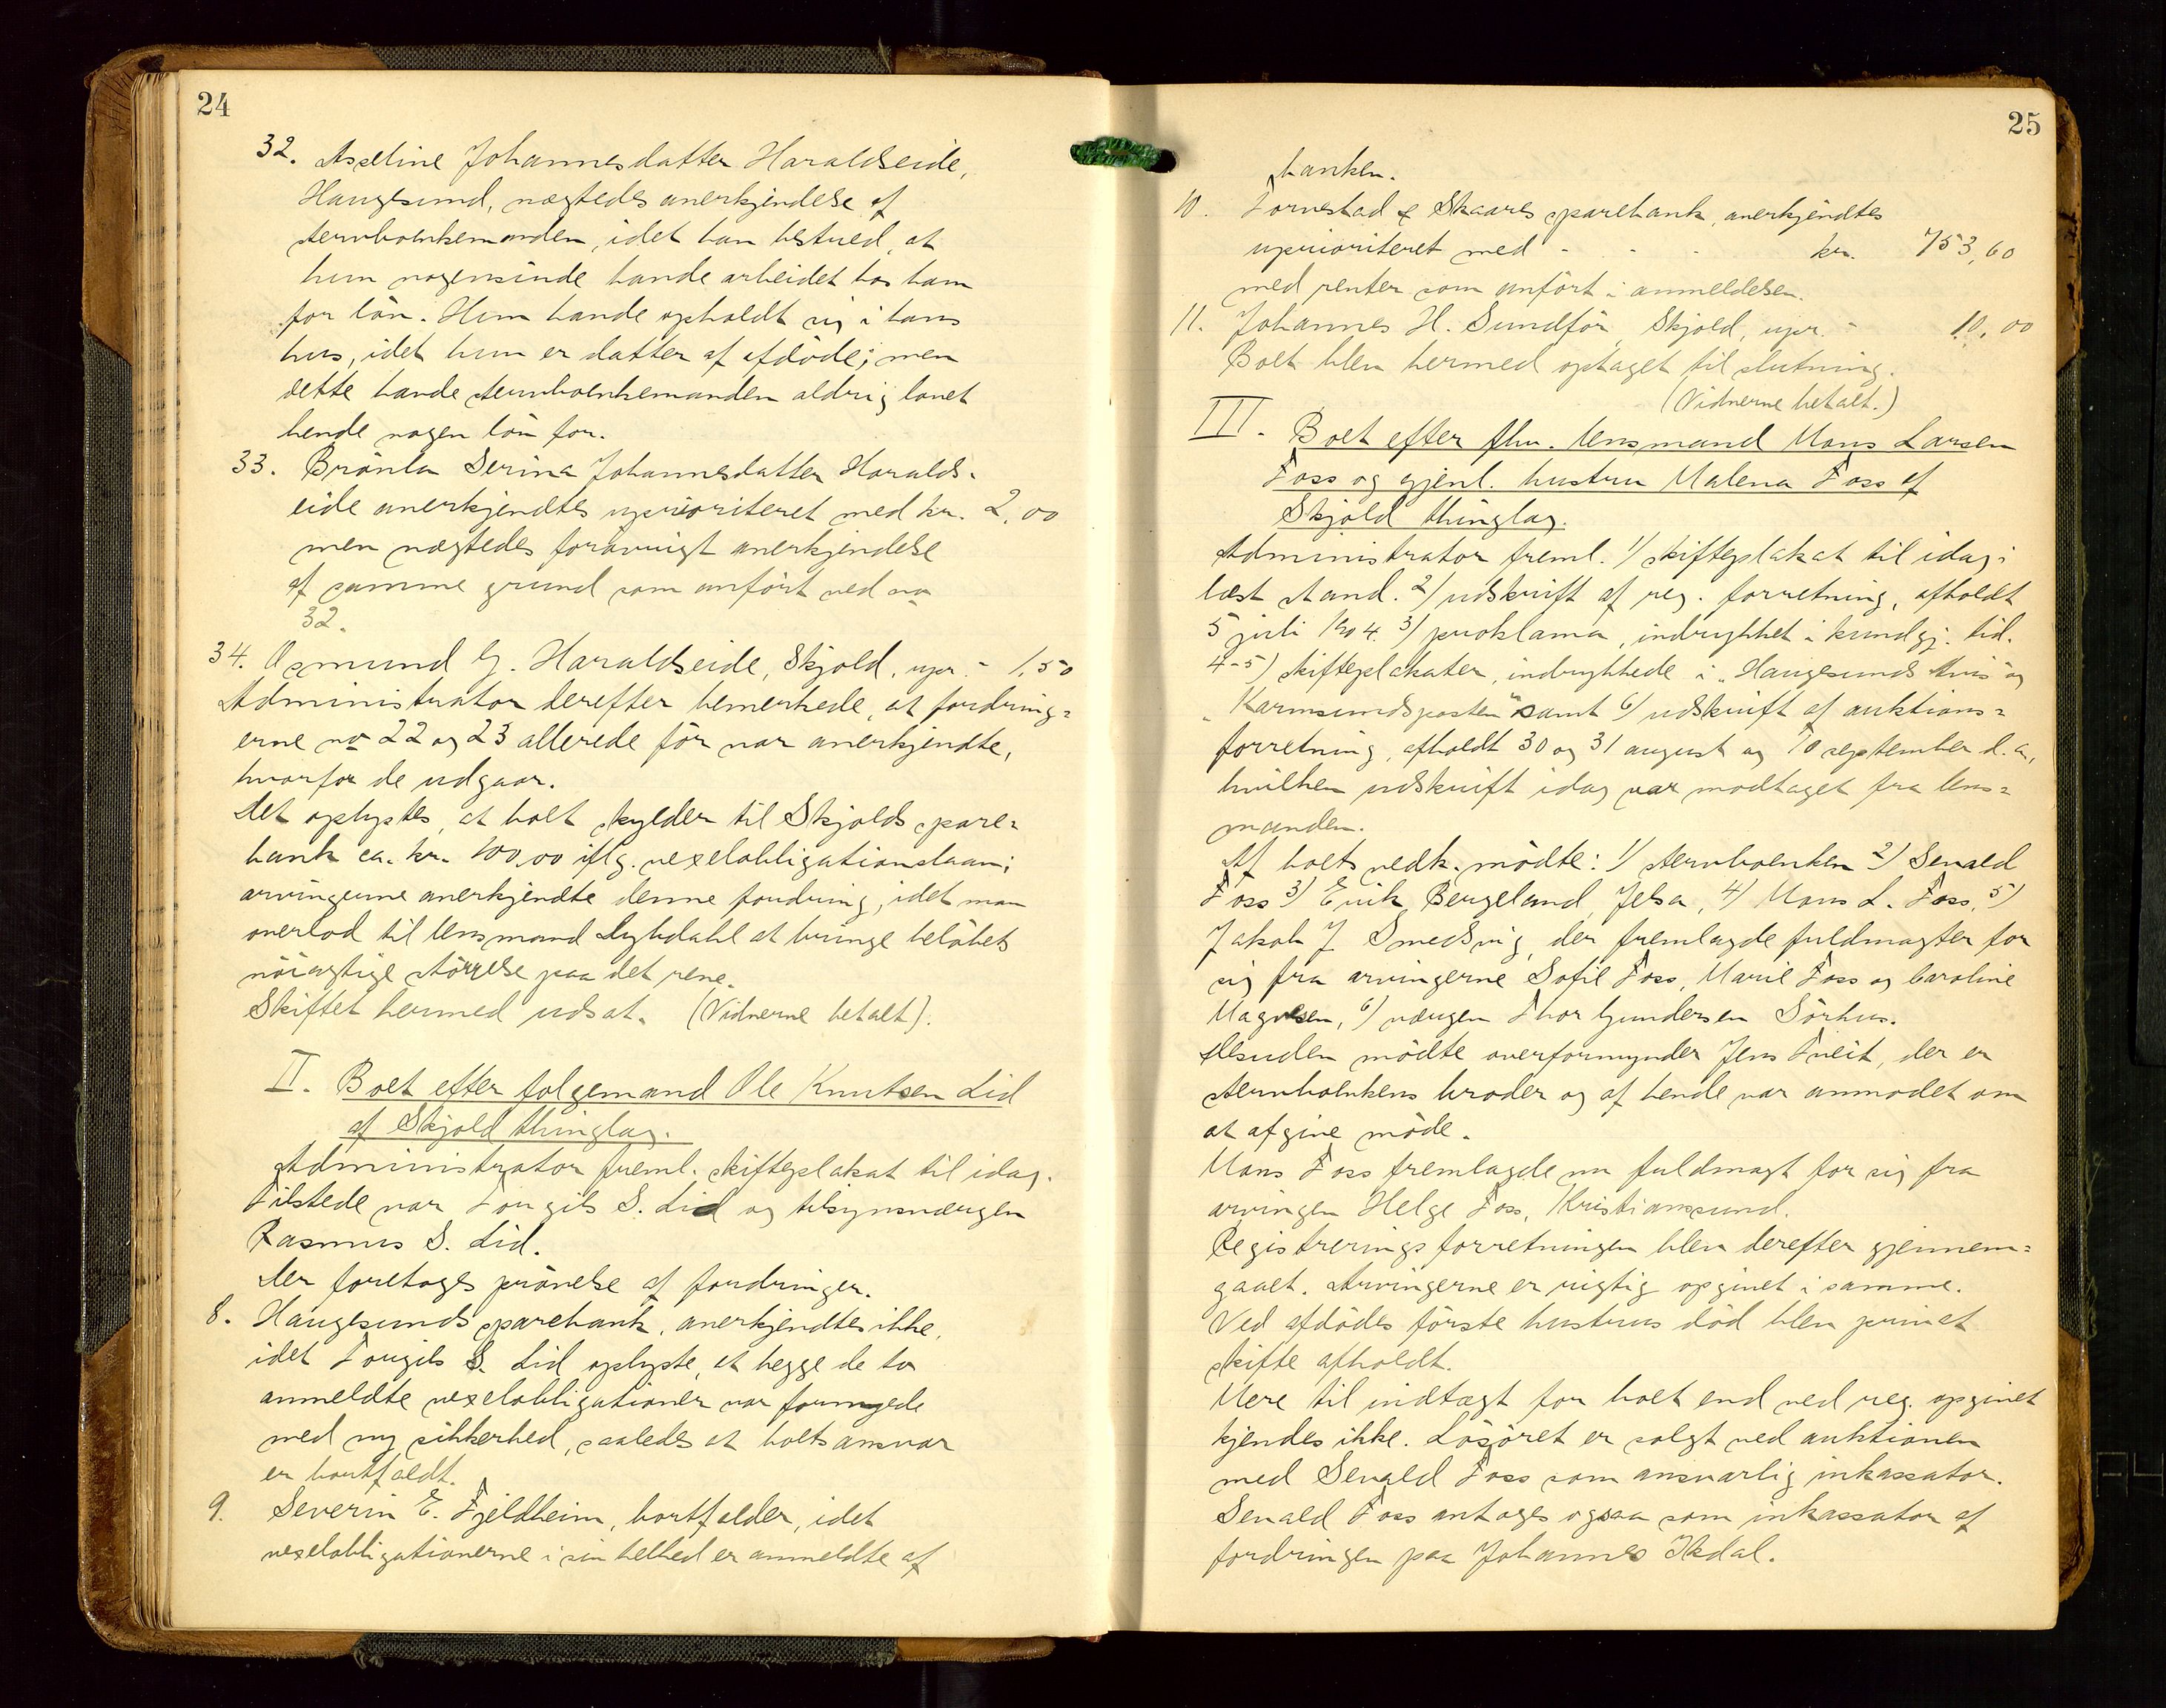 24
32. Axeline Johannesdatter Haraldseide,
Haugesund, nægtedes anerkjendelse af
stervboenkemanden, idet han bestred, at
hun nogensinde havde arbeidet hos ham
for løn. Hun havde opholdt sig i hans
hus, idet hun er datter af afdøde; men
dette havde stervboenkemanden aldrig lovet
hende nogen løn for.
33. Brønla Serina Johannesdatter Haralds-
eide anerkjendtes uprioriteret med kr. 2,00
men nægtedes forøvrigt anerkjendelse
af samme grund som anført ved no
32.
34. Osmund G. Haraldseide, Skjold, upr. - 1,50
Administrator derefter bemerkede, at fordring=
erne no 22 og 23 allerede før var anerkjendte,
hvorfor de udgaar.
Det oplystes, at boet skylder til Skjolds spare=
bank ca. kr. 100,00 iflg. vexelobligationslaan;
arvingerne anerkjendte denne fordring, idet man
overlod til lensmand Lyhdahl at bringe beløbets
nøiagtige størrelse paa det rene.
Skiftet hermed udsat. (Vidnerne betalt).
II. Boet efter folgemand Ole Knutsen Lid
af Skjold thinglag.
Administrator freml. skifteplakat til idag.
Tilstede var Torgils S. Lid og tilsynsværgen
Rasmus S. Lid.
Der foretoges prøvelse af fordringer.
8. Haugesunds sparebank, anerkjendtes ikke,
idet Torgils S. Lid oplyste, at begge de to
anmeldte vexelobligationer var fornyede
med ny sikkerhed, saaledes at boets ansvar
er bortfaldt.
9. Severin E. Fjeldheim, bortfalder, idet
vexelobligationerne i sin helhed er anmeldte af
25
banken.
10. Tornestad & Skaares sparebank, anerkjendtes
uprioriteret med - - - kr. 753,60
med renter som anført i anmeldelsen.
11. Johannes H. Sundfør, Skjold, upr. - 10,00
Boet blev hermed optaget til slutning.
(Vidnerne betalt.)
III. Boet efter fhv. lensmand Mons Larsen
Foss og gjenl. hustru Malena Foss af
Skjold thinglag.
Administrator freml. 1) skifteplakat til idag i
læst stand. 2) udskrift af reg. forretning, afholdt
5 juli 1904. 3) proklama, indrykket i kundgj. tid.
4-5) skifteplakater, indrykkede i "Haugesunds Avis" og
"Karmsundsposten" samt 6) udskrift af auktions=
forretning, afholdt 30 og 31 august og 10 september d. a,
hvilken udskrift idag var modtaget fra lens=
manden.
Af boets vedk. mødte: 1) stervboenken 2) Sevald
Foss 3) Erik Bergeland, Jelsa, 4) Mons L. Foss, 5)
Jakob J. Smedsvig, der fremlagde fuldmagter for
sig fra arvingerne Sofie Foss, Marie Foss og Caroline
Magnesen, 6) værgen Thor Gundersen Sørhus.
Desuden mødte overformynder Jens Tveit, der er
stervboenkens broder og af hende var anmodet om
at afgive møde.
Mons Foss fremlagde nu fuldmagt for sig fra
arvingen Helge Foss, Kristianssund.
Registreringsforretningen blev derefter gjennem=
gaaet. Arvingerne er rigtig opgivet i samme.
Ved afdødes første hustrus død blev privat
skifte afholdt.
Mere til indtægt for boet end ved reg. opgivet
kjendes ikke. Løsøret er solgt ved auktionen
med Sevald Foss som ansvarlig inkassator.
Sevald Foss antoges ogsaa som inkassator af
fordringen paa Johannes Ilsdal.